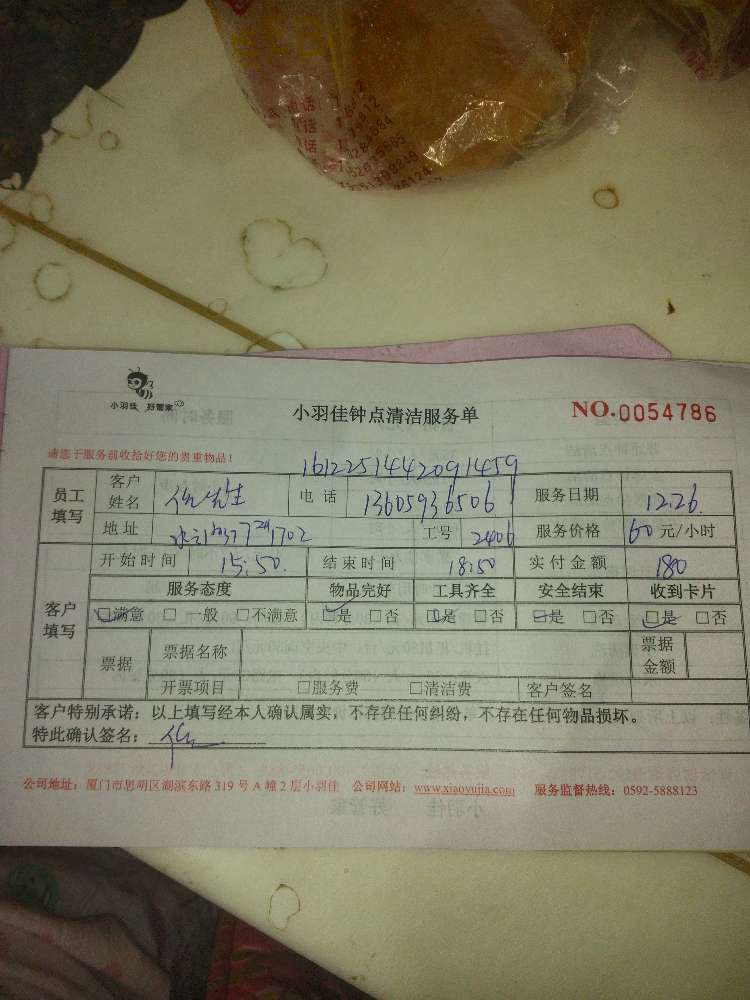 小羽佳 好管家
小羽佳钟点清洁服务单
NO.0054786
请您于服务前收拾好您的贵重物品!
1612251442091459
员工填写 客户姓名 先生 电话 13605936506 服务日期 12.26.
地址 1702 工号 2406 服务价格 60 元/小时
客户填写 开始时间 15:50. 结束时间 18:50 实付金额 180
服务态度 物品完好 工具齐全 安全结束 收到卡片
☑满意 □一般 □不满意 ☑是 □否 ☑是 □否 ☑是 □否 ☑是 □否
票据 票据名称 票据金额
开票项目 □服务费 □清洁费 客户签名
客户特别承诺:以上填写经本人确认属实,不存在任何纠纷,不存在任何物品损坏。
特此确认签名:
公司地址:厦门市思明区湖滨东路 319 号 A 幢 2 层小羽佳 公司网站:www.xiaoyujia.com 服务监督热线:0592-5888123